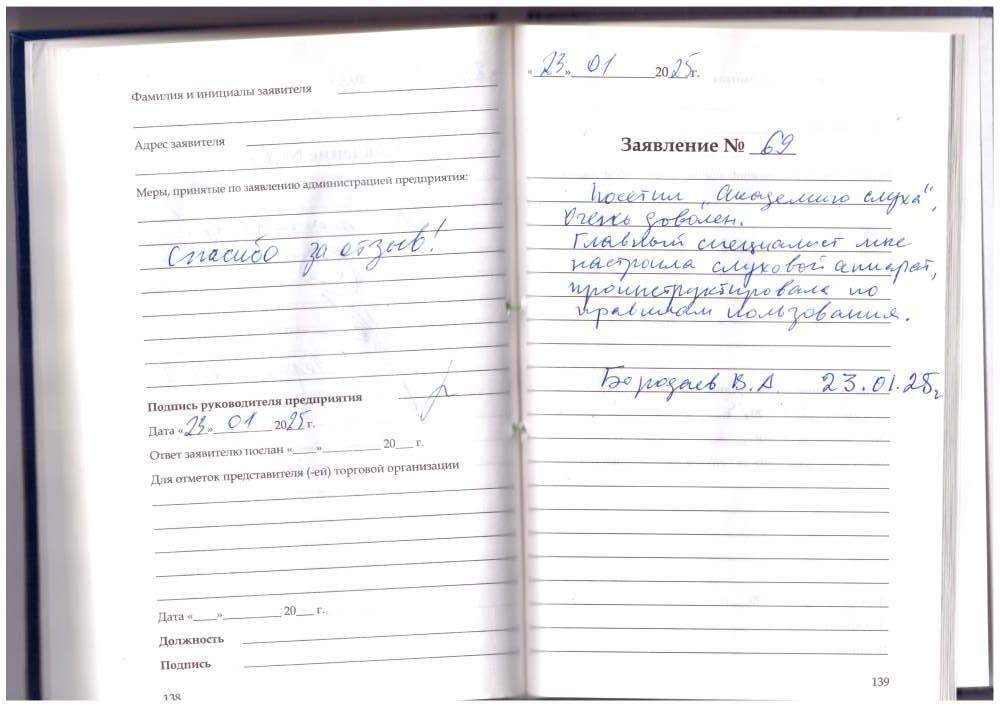 Фамилия и инициалы заявителя
Адрес заявителя
Меры, принятые по заявлению администрацией предприятия:
Спасибо за отзыв!
Подпись руководителя предприятия
Дата «23» 01 2025г.
Ответ заявителю послан «___»__________ 20___ г.
Для отметок представителя (-ей) торговой организации
Дата «____»__________ 20___ г.
Должность
Подпись
138
«23» 01 2025г.
Заявление № 69
Посетил „Академию слуха“,
Очень доволен.
Главный специалист мне
настроила слуховой аппарат,
проинструктировала по
правилам пользования.
Бородаев В.А 23.01.25г
139